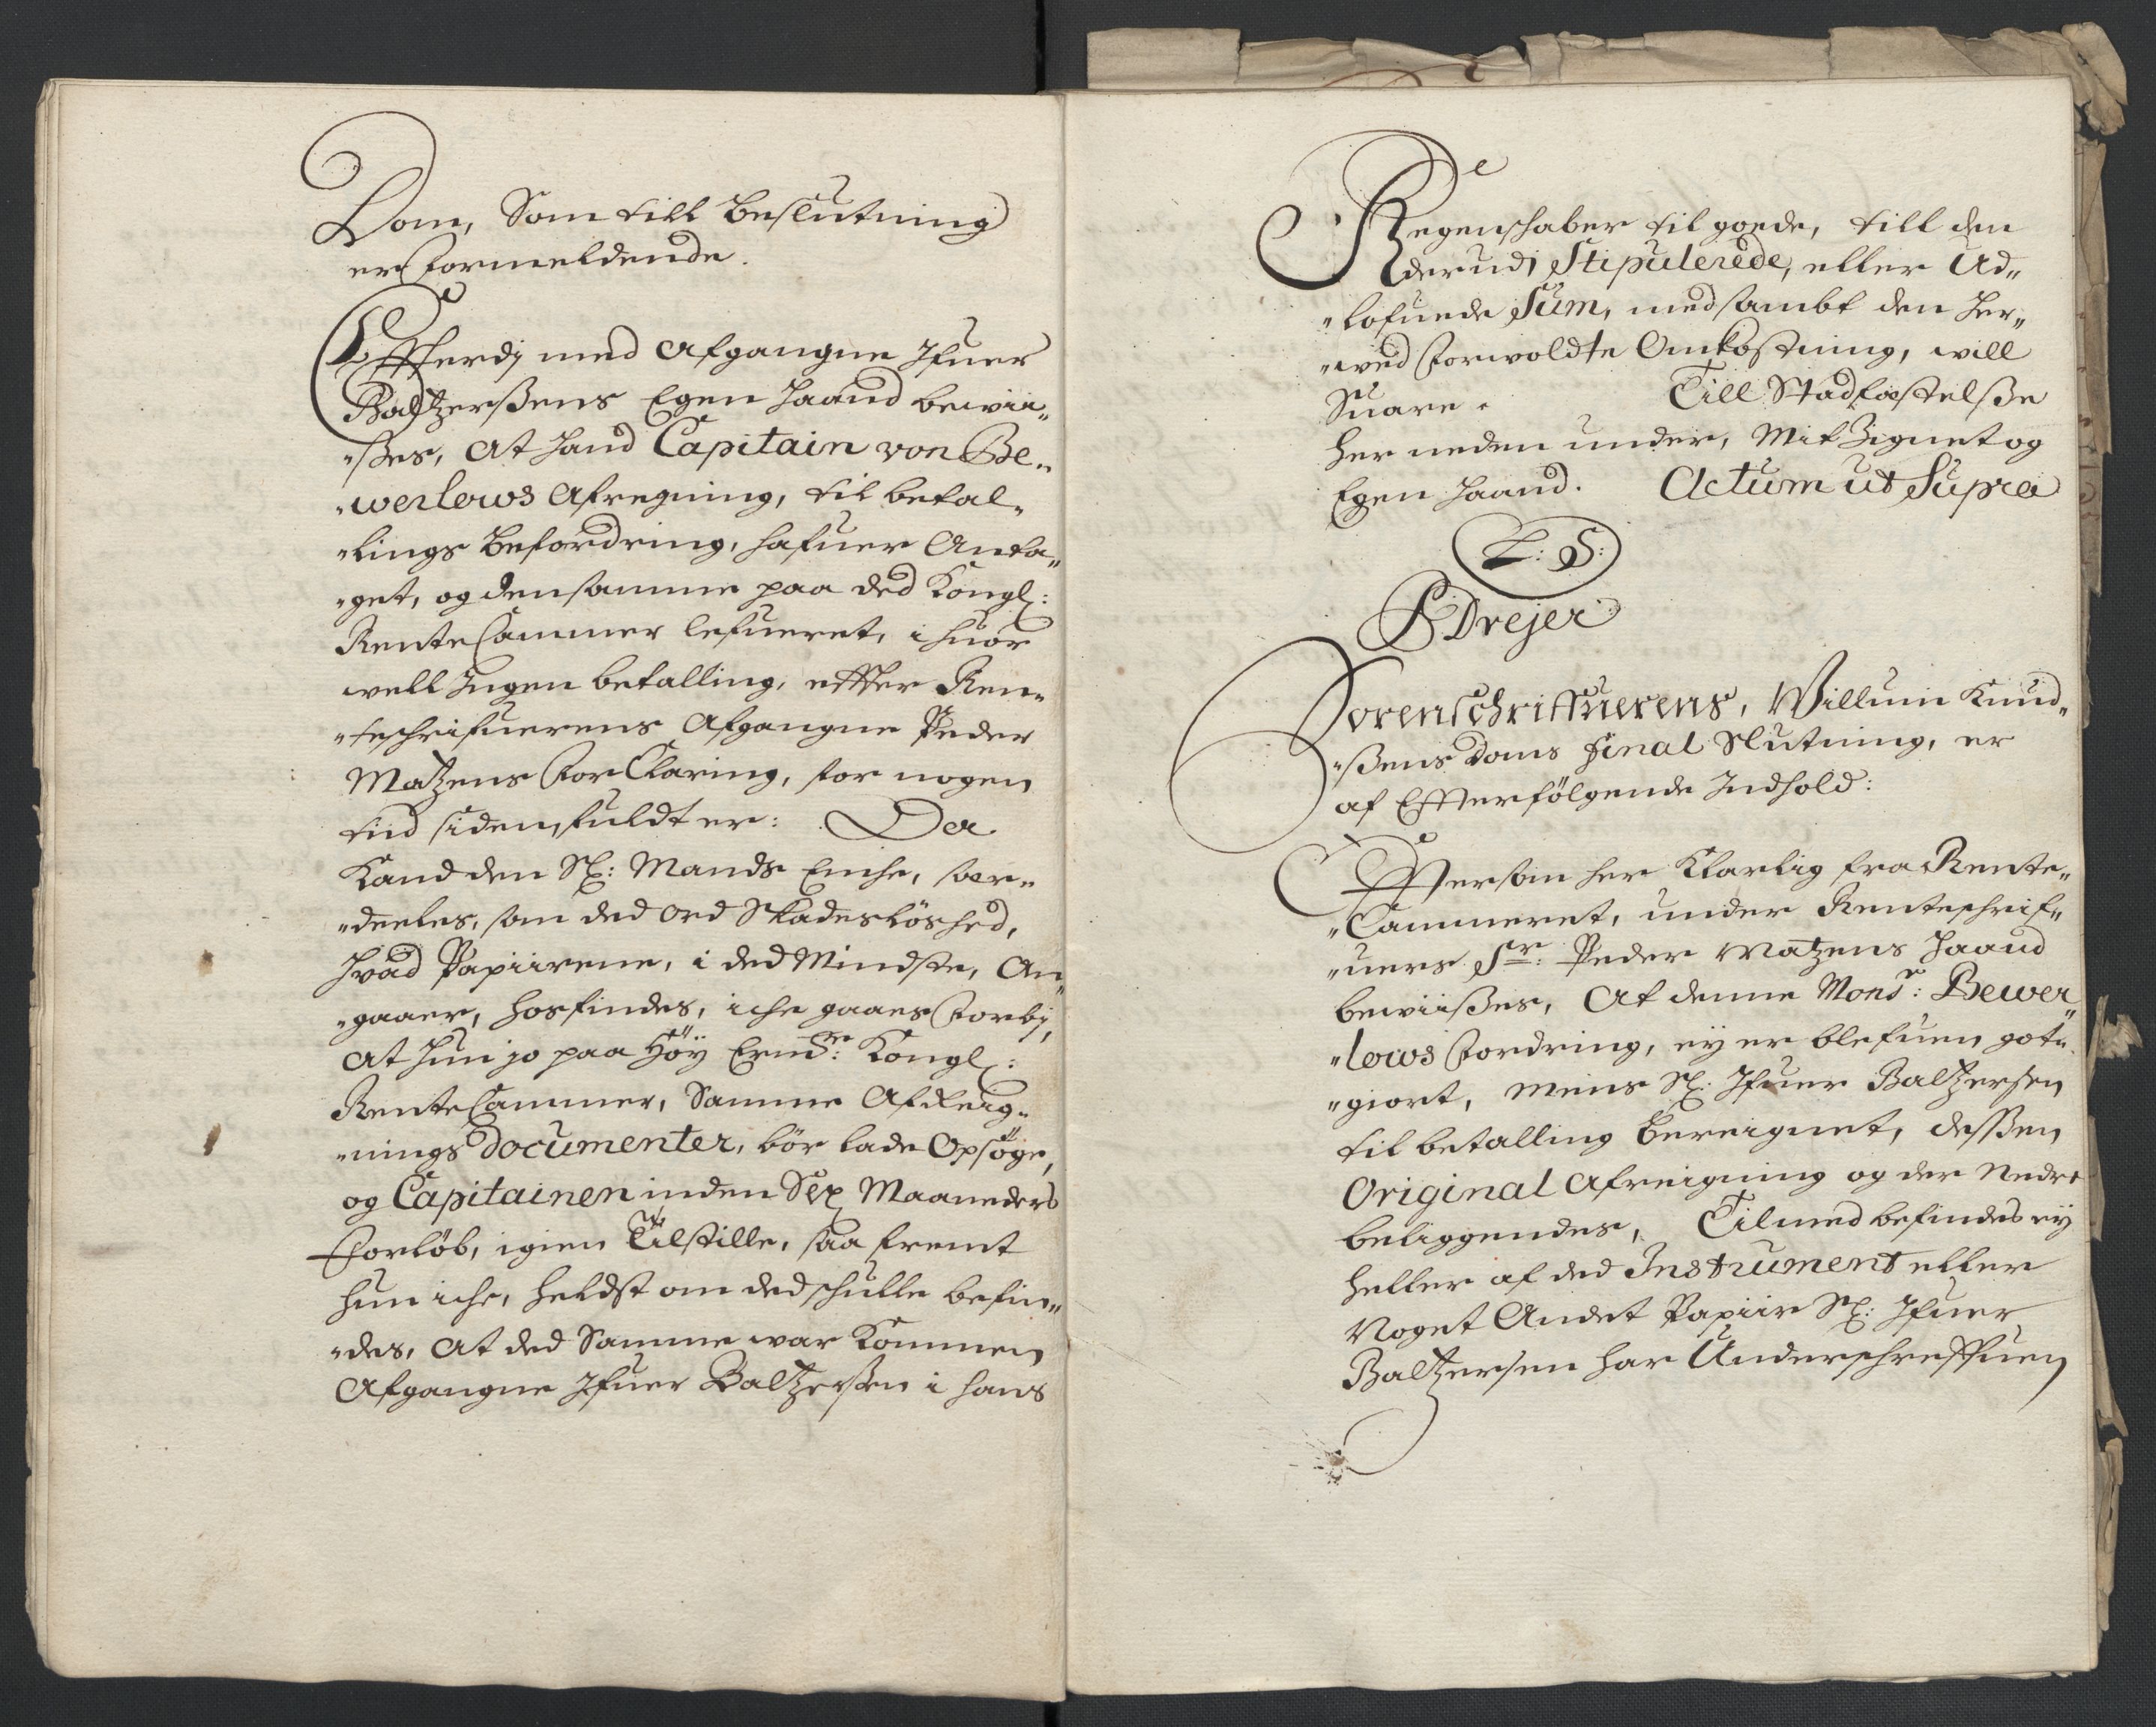 Dom, Som till beslutning
er formeldende.
Effterdj med afgangne Ifuer
Baltzerßens Egen Haand bewii„
„ßes, at Hand Capitain von Be„
„werlows Afregning, til betal„
„lings befordring, hafuer Anta„
„get, og densamme paa ded Kongl:
RenteCammer lefueret, ihuor
well Ingen betalling, effter Ren„
„teschrifuerens Afgangne Peder
Matzens forClaring, for nogen
tiid siden, fuldt er: Der
Kand den Sl: Mands Enche, sær„
„deeles, som ded ord Skadesløshed,
Hvad Papiirene, i ded Mindste, An„
„gaaer, hosfindes, iche gaaes forbj,
at Hun jo paa Høÿ Ermte: Kongl:
RenteCammer, Samme Afreig„
„nings documenter, bör lade Opsøge,
og Capitainen inden Sex Maaneders
forløb, igien Tilstille, saa fremt
hun iche, heldst om ded schulle befin„
„des, at ded Samme war Kommen
Afgangne Ifuer Baltzerßen i hans
Regenschaber til goede, till den
derudj Stipulerede, eller Ud„
„lofuede Sum, med sambt den Her„
„wed forwoldte Omkostning, will
Suare. Till Stadfæstelße
her neden under, Mit Zignet og
Egen Haand. Actum ut Supra
L: S:
P Drejer
Sorenschriffuerens, Willum Knud„
„ßens doms final Slutning, er
af Effterfölgende Indhold:
Effterson her Klarlig fra Rente„
„Cammeret, under Renteschrif„
„uers Sr: Peder Matzens Haand
bewiißes, At denne Monsr: Bewer„
„lows fordring, ey er blefuen got„
„giort, mens Sl: Ifuer Baltzersen
til betalling bereignet, dessen
Original Afreigning og der Nedre
beliggendes, Tilmed befindes ey
heller af ded Instrument eller
Noget Andet Papiir Sl: Ifuer
Baltzersen har Underschreffuen